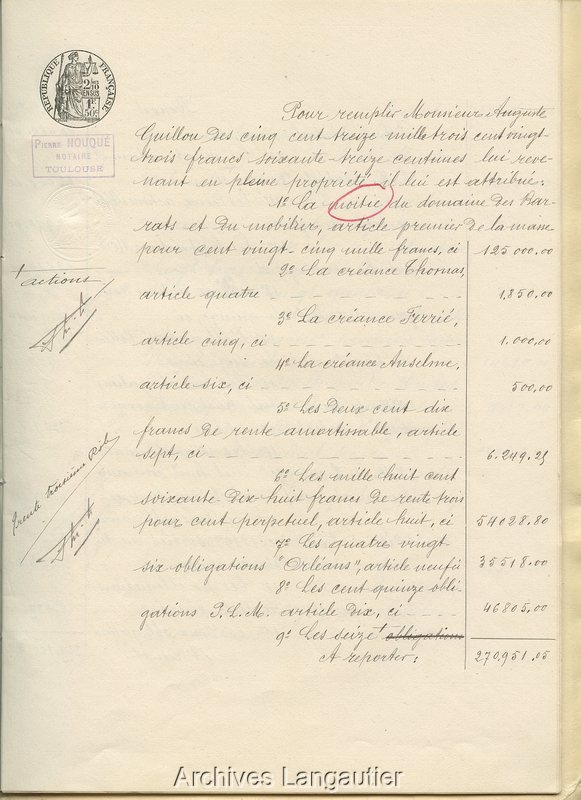 RÉPUBLIQUE FRANÇAISE
2/10
EN SUS
1F
50c
PIERRE NOUQUÉ
NOTAIRE
TOULOUSE
Pour remplir Monsieur Auguste
Guillou des cinq cent treize mille trois cent vingt-
trois francs soixante-treize centimes lui reve-
nant en pleine propriété, il lui est attribué:
1º La moitié du domaine des Kar-
rats et du mobilier, article premier de la masse
pour cent vingt-cinq mille francs, ci 125000.00
2º La créance Thomas,
article quatre 1,850,00
3º La créance Ferrié,
article cinq, ci 1.000,00
4º La créance Anselme,
article six, ci 500,00
5º Les deux cent dix
francs de rente amortissable, article
sept, ci 6.249.25
6º Les mille huit cent
soixante-dix huit francs de rente trois
pour cent perpetuel, article huit, ci 54028.80
7º Les quatre vingt
six obligations "Orléans", article neuf, ci 35518.00
8º Les cent quinze obli-
gations P.L.M. article dix, ci 46805,00
9º Les seize + obligations
A reporter: 270.951.05
+ actions
trente troisième Rôle
Archives Langautier